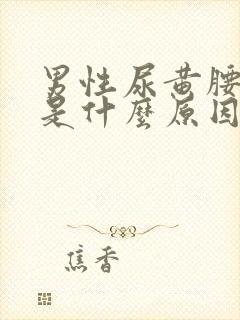 男性尿黄腰
是什麼原因
焦香